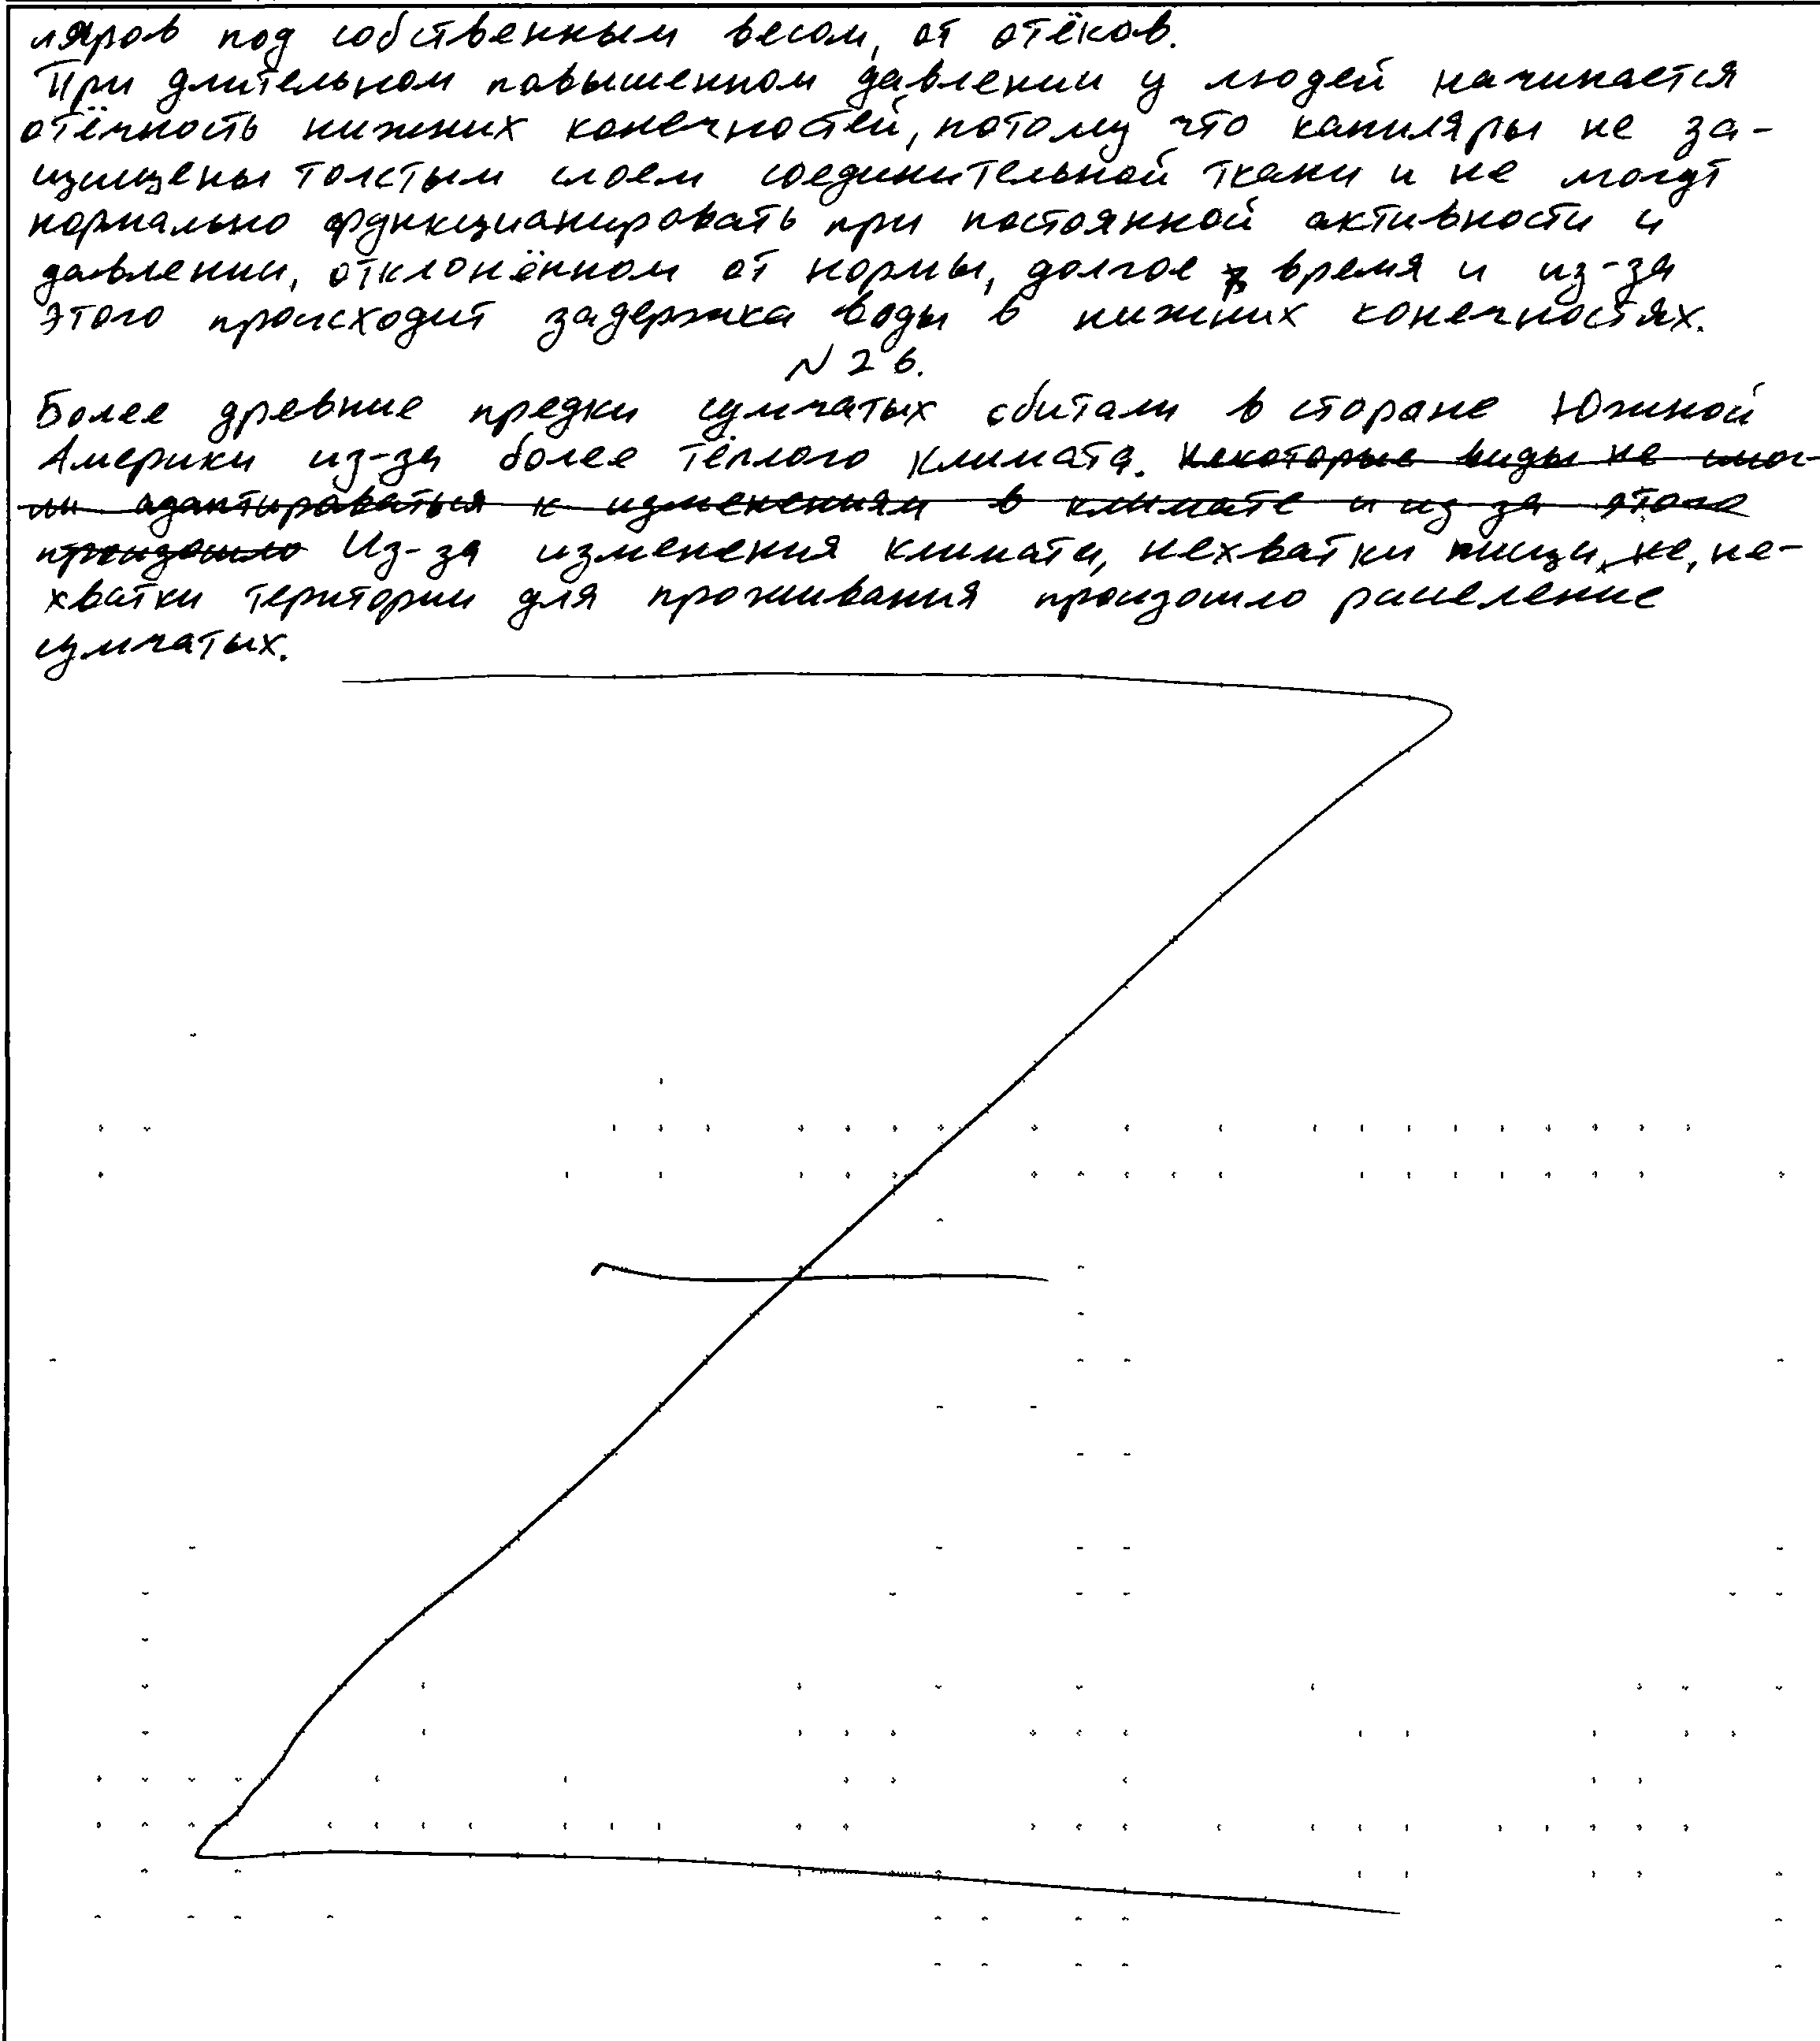 ляров под собственным весом, от отёков.
При длительном повышенном давлении у людей начинается
отёчность нижних конечностей, потому что капиляры не за-
щищены толстым слоем соединительной ткани и не могут
нормально функцианировать при постоянной активности и
давлении, отклонённом от нормы, долгое время и из-за
этого происходит задержка воды в нижних конечностях.
N 26.
Более древние предки сумчатых обитали в стороне Южной
Америки из-за более тёплого климата. Некоторые виды не смог-
ли адаптироваться к изменениям в климате и из за этого
произошло Из-за изменения климата, нехватки пищи, не, не-
хватки територии для проживания произошло расселение
сумчатых.